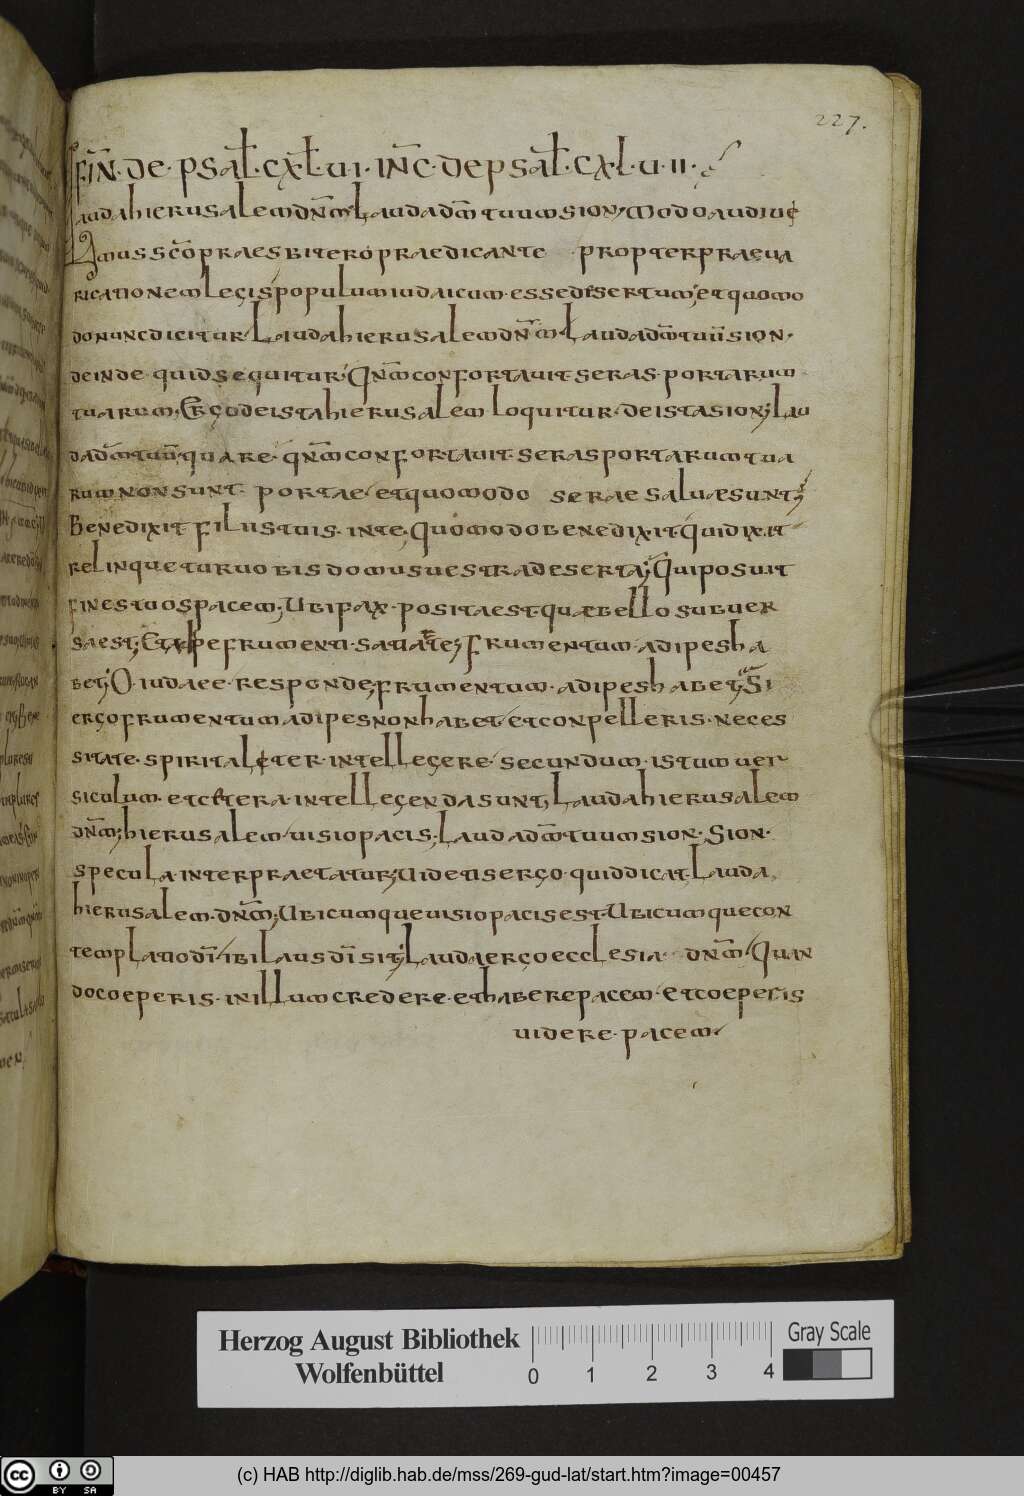 227.
FIN̄. DE. PSAL̄. CXL̄.VI. INC̄. DE PSAL̄. CXL.VII.
Lauda hierusalem dnm̄ Lauda dm̄ tuum sion; modo audiuę
amus scō praesbitero praedicante propter praeua
ricationem legis populum iudaicum esse desertum; et quomo
do nunc dicitur Lauda hierusalem dnm̄. Lauda dm̄ tuū sion.
deinde quid sequitur; Qnm̄ confortauit seras portarum
tuarum; Ergo de ista hierusalem loquitur. de ista sion; Lau
da dm̄ tuū quare. qnm̄ confortauit seras portarum tua
rum non sunt portae et quomodo serae saluae sunt;
Benedixit filiis tuis. in te; Quomodo benedixit. quid ixit
relinquetur uobis domus uestra deserta; Qui posuit
fines tuos pacem; Ubi pax. posita est. quae bello subuer
sa est; Et adipe frumenti satiat te; frumentum. adipes ha
bet; O. iudaee. responde; frumentum. adipes habet; Si
ergo frumentum adipes non habet. et conpelleris. neces
sitate. spiritalęter. intellegere. secundum. istum uer
siculum. et cetera. intellegenda sunt, Lauda hierusalem
dnm̄; hierusalem uisio pacis; Lauda dm̄ tuum sion. Sion.
specula. interpraetatur; Uidetis ergo. quid dicat Lauda
hierusalem. dnm̄; Ubicumque uisio pacis est. Ubicumque con
templatio dī ibi laus dī sit; Lauda ergo ecclesia dnm̄ Quan
do coeperis. in illum credere. et habere pacem. et coeperis
uidere. pacem.
Herzog August Bibliothek
Wolfenbüttel
0 1 2 3 4
Gray Scale
cc BY SA
(c) HAB http://diglib.hab.de/mss/269-gud-lat/start.htm?image=00457